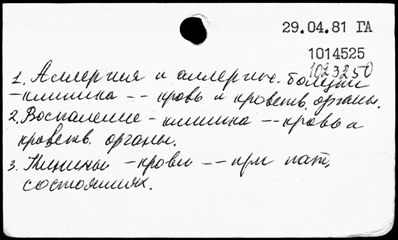 29.04.81 ГА
1014525
1023250
1. Аллергия и аллергич. болезни
-клиника -- кровь и кроветв. органы.
2. Воспаление - клиника -- кровь и
кроветв. органы.
3. -крови -- при пат.
состояниях.